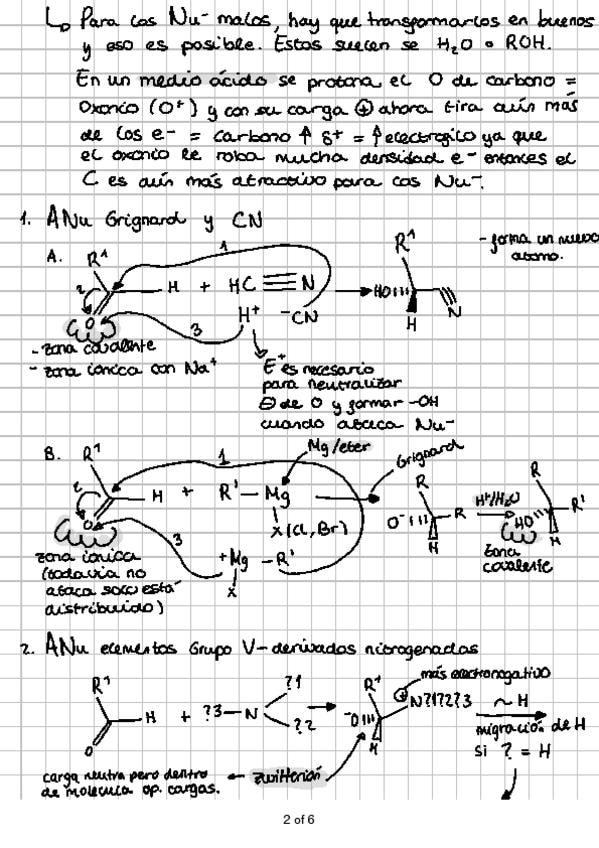 ↳ Para los Nu⁻ malos, hay que transformarlos en buenos
y eso es posible. Estos suelen se H₂O o ROH.
En un medio ácido se protona el O de carbono =
Oxonio (O⁺) y con su carga ⊕ ahora tira aún más
de los e⁻ = carbono ↑ δ⁺ = ↑ electrofílico ya que
el oxonio le roba mucha densidad e⁻ entonces el
C es aún más atractivo para los Nu⁻.
1. ANu Grignard y CN
A. R¹ 1 R¹ - forma un nuevo
2 H + HC≡N HO H N
O 3 H⁺ ⁻CN
- zona covalente
- zona iónica con Na⁺
E⁺ es necesario
para neutralizar
⊖ de O y formar -OH
cuando ataca Nu⁻
B. R¹ 1 Mg/eter Grignard
2 H + R'-Mg R R
O X(Cl, Br) O⁻ R H H⁺/H₂O HO R' H
3 +Mg-R' X
zona iónica
(todavía no
distribuido)
zona
covalente
2. ANu elementos Grupo V - derivados nitrogenados
más electronegativo
R¹ H O + ?3-N ?1 ?2 R¹ ⁻O H ⊕ N?1?2?3 ~H
migración de H
si ? = H
carga neutra pero dentro ← zwitterión
de molécula op. cargas.
2 of 6